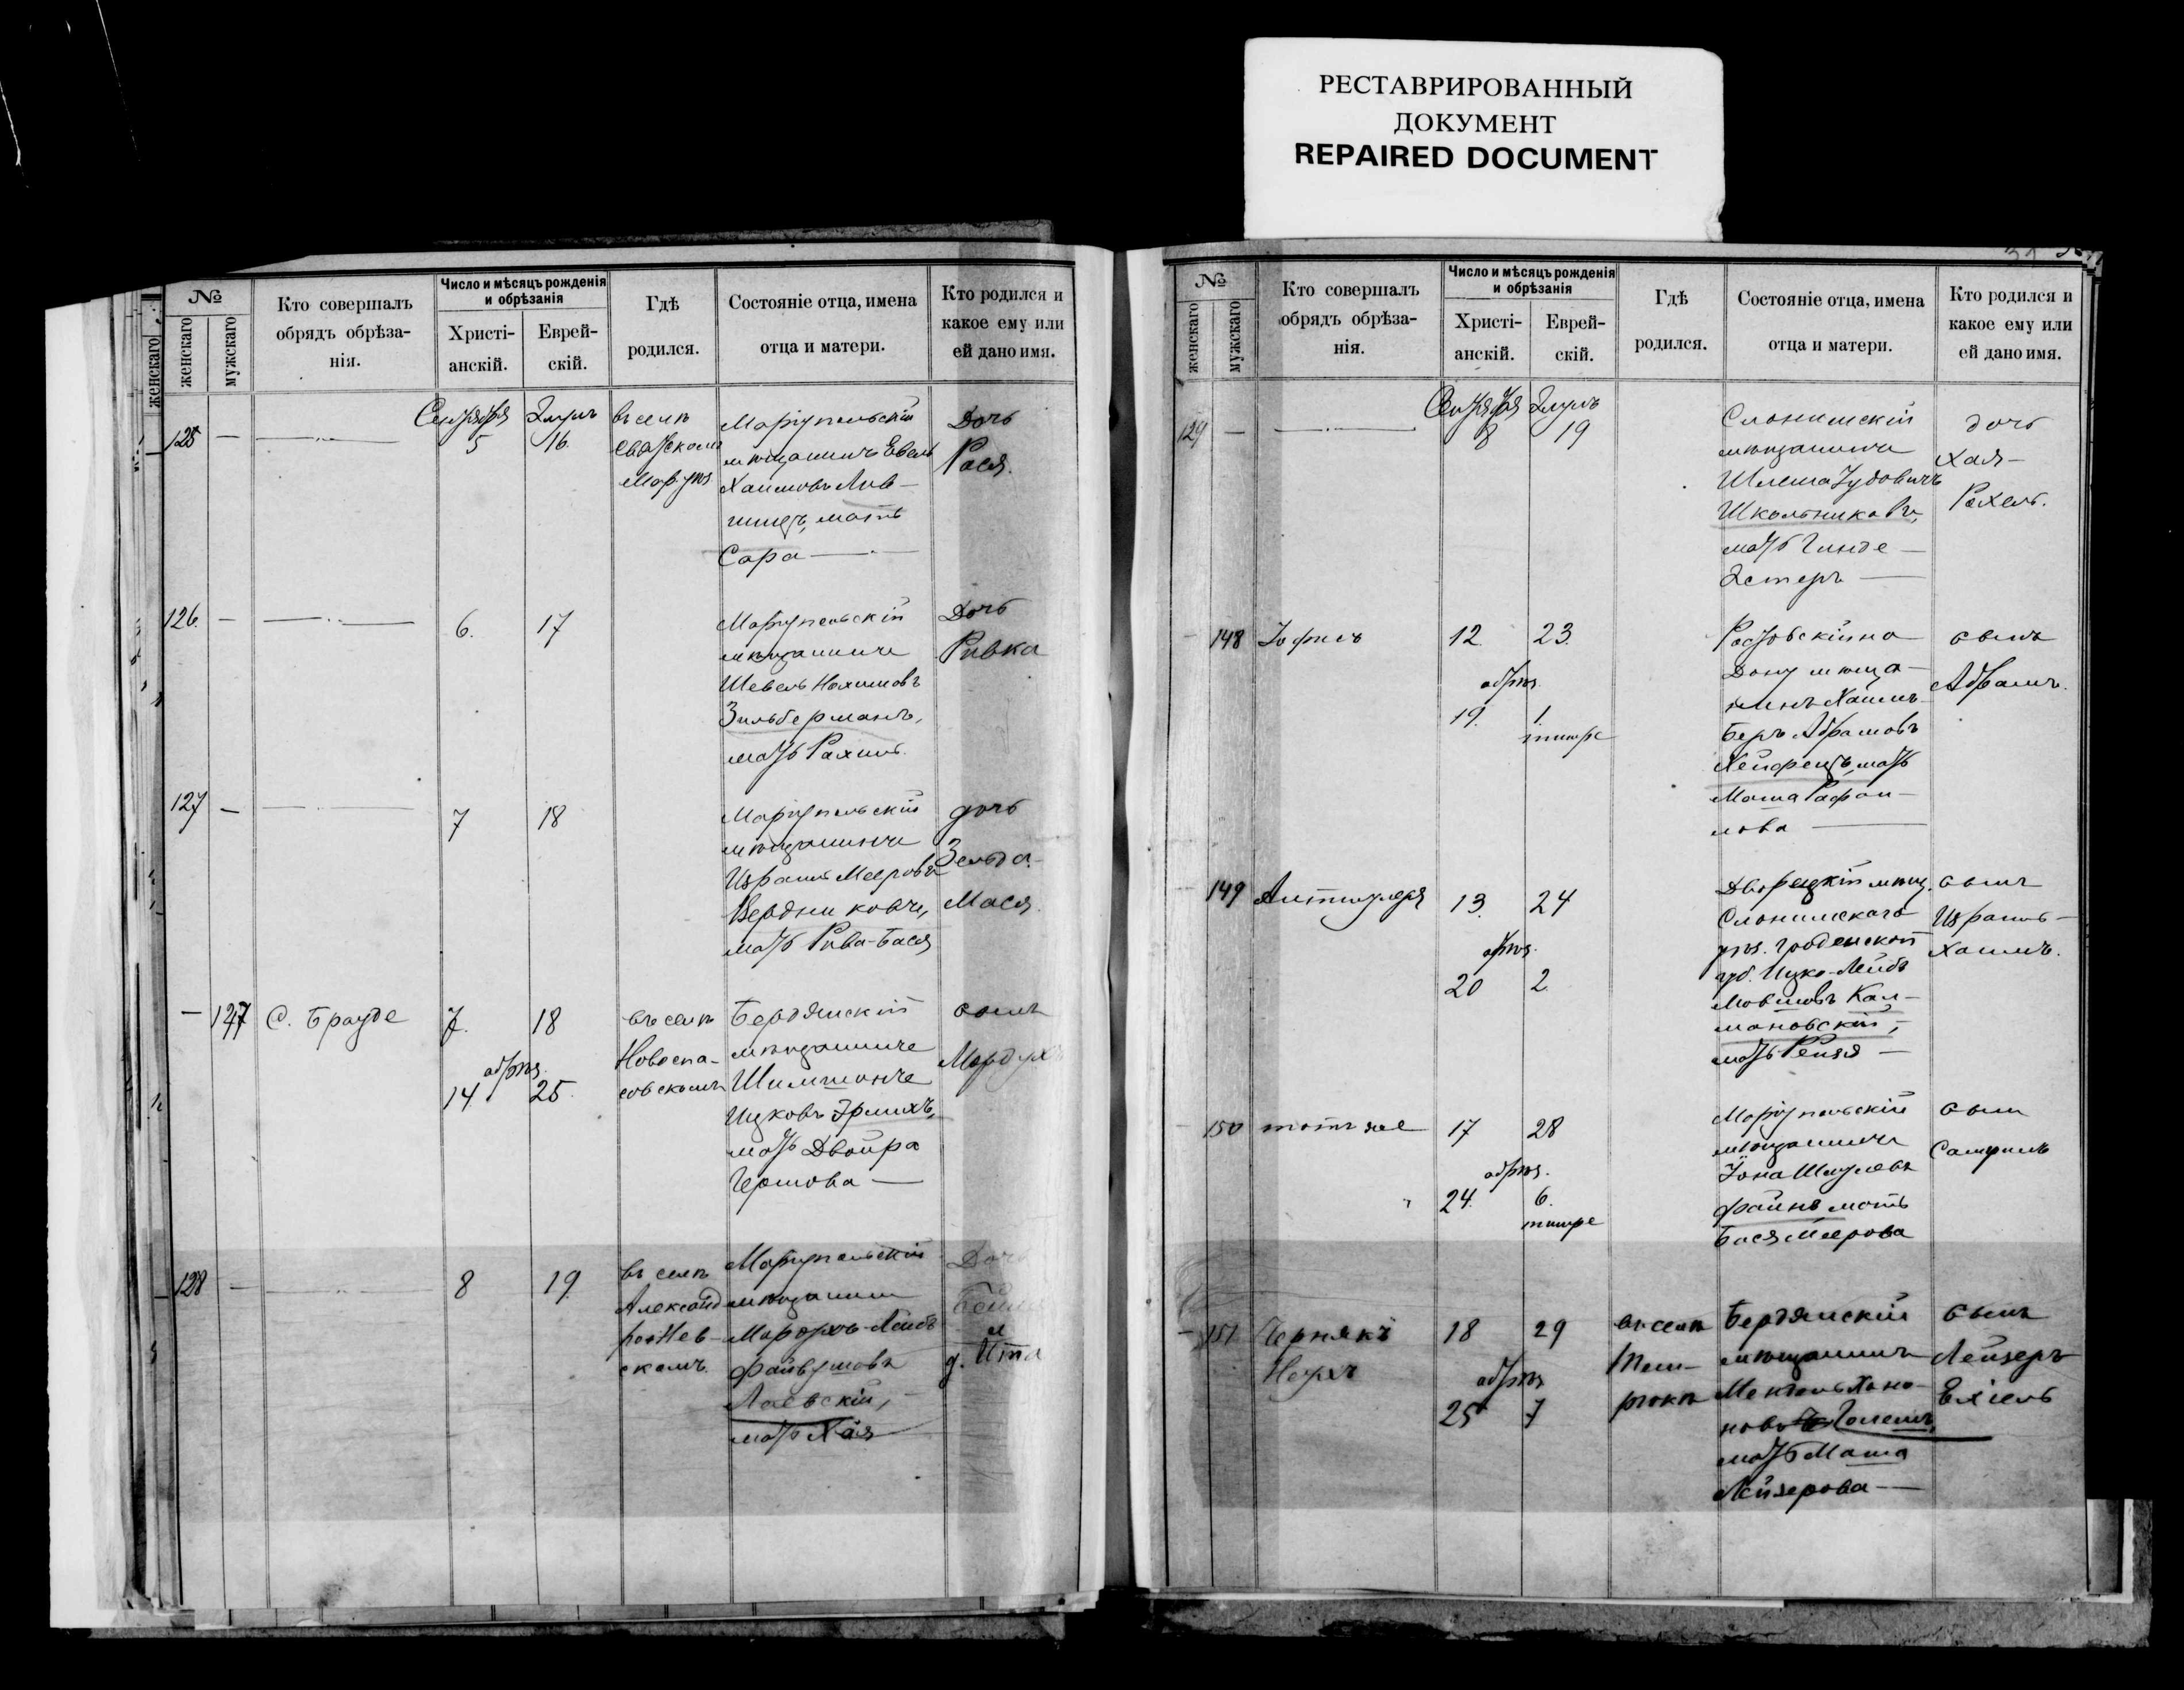 РЕСТАВРИРОВАННЫЙ
ДОКУМЕНТ
REPAIRED DOCUMENT
№
женскаго
женскаго
мужскаго
Кто совершалъ
обрядъ обрѣза-
нія.
Число и мѣсяцъ рожденія
и обрѣзанія
Христі-
анскій.
Еврей-
скій.
Гдѣ
родился.
Состояніе отца, имена
отца и матери.
Кто родился и
какое ему или
ей дано имя.
125
Сентября
5
Элулъ
16
въ селѣ
Маріупольскій
мѣщанинъ Евель
Хаимовъ Лив-
шицъ, мать
Сара
Дочь
Рася.
126.
6.
17
Маріупольскій
мѣщанинъ
Шевель Нахимовъ
Зильберманъ,
мать Рахиль
Дочь
Ривка
127
7
18
Маріупольскій
мѣщанинъ
Израиль Мееровъ
мать Рива-Бася
дочь
Зельда-
Мася.
147
С. Брауде
7.
обрѣз.
14
18
25.
въ селѣ
Новоспа-
совскомъ
Бердянскій
мѣщанинъ
Шимшонъ
Ицковъ Эрлихъ,
мать Двойра
Гершова
сынъ
Мордухъ
128
8
19
въ селѣ
Александ
роНев-
скомъ
Маріупольскій
мѣщанинъ
Мордухъ-Лейбъ
Файвушовъ
Лаевскій,
мать Хая
Дочь
и
д. Ита
№
женскаго
мужскаго
Кто совершалъ
обрядъ обрѣза-
нія.
Число и мѣсяцъ рожденія
и обрѣзанія
Христі-
анскій.
Еврей-
скій.
Гдѣ
родился.
Состояніе отца, имена
отца и матери.
Кто родился и
какое ему или
ей дано имя.
129
Сентября
8
Элулъ
19
Слонимскій
мѣщанинъ
Шлема Іудовичъ
Школьниковъ,
мать Гинде
Эстеръ
дочь
Хая-
Рахель.
148
12.
обрѣз.
19.
23.
1.
тишре
Ростовскій на
Дону мѣща-
нинъ Хаимъ-
Беръ Абрамовъ
Хейфецъ, мать
Маша Рафаи-
лова
сынъ
Абрамъ.
149
13.
обрѣз.
20
24
2.
Дворецкій мѣщ.
Слонимскаго
уѣз. Гродненской
губ. Ицко-Лейбъ
Мовшовъ Кал-
мановскій,
мать Рейзя
сынъ
Израиль-
Хаимъ.
150
тотъ же
17
обрѣз.
24.
28
6.
тишре
Маріупольскій
мѣщанинъ
Іона Шмулевъ
Файнъ мать
Бася Меерова
сынъ
Самуилъ
151
Чернякъ
18
обрѣз
25
29
7
въ селѣ
Бердянскій
мѣщанинъ
Мендель Хано-
новъ
мать Маша
Лейзерова
сынъ
Лейзеръ
Ехіель